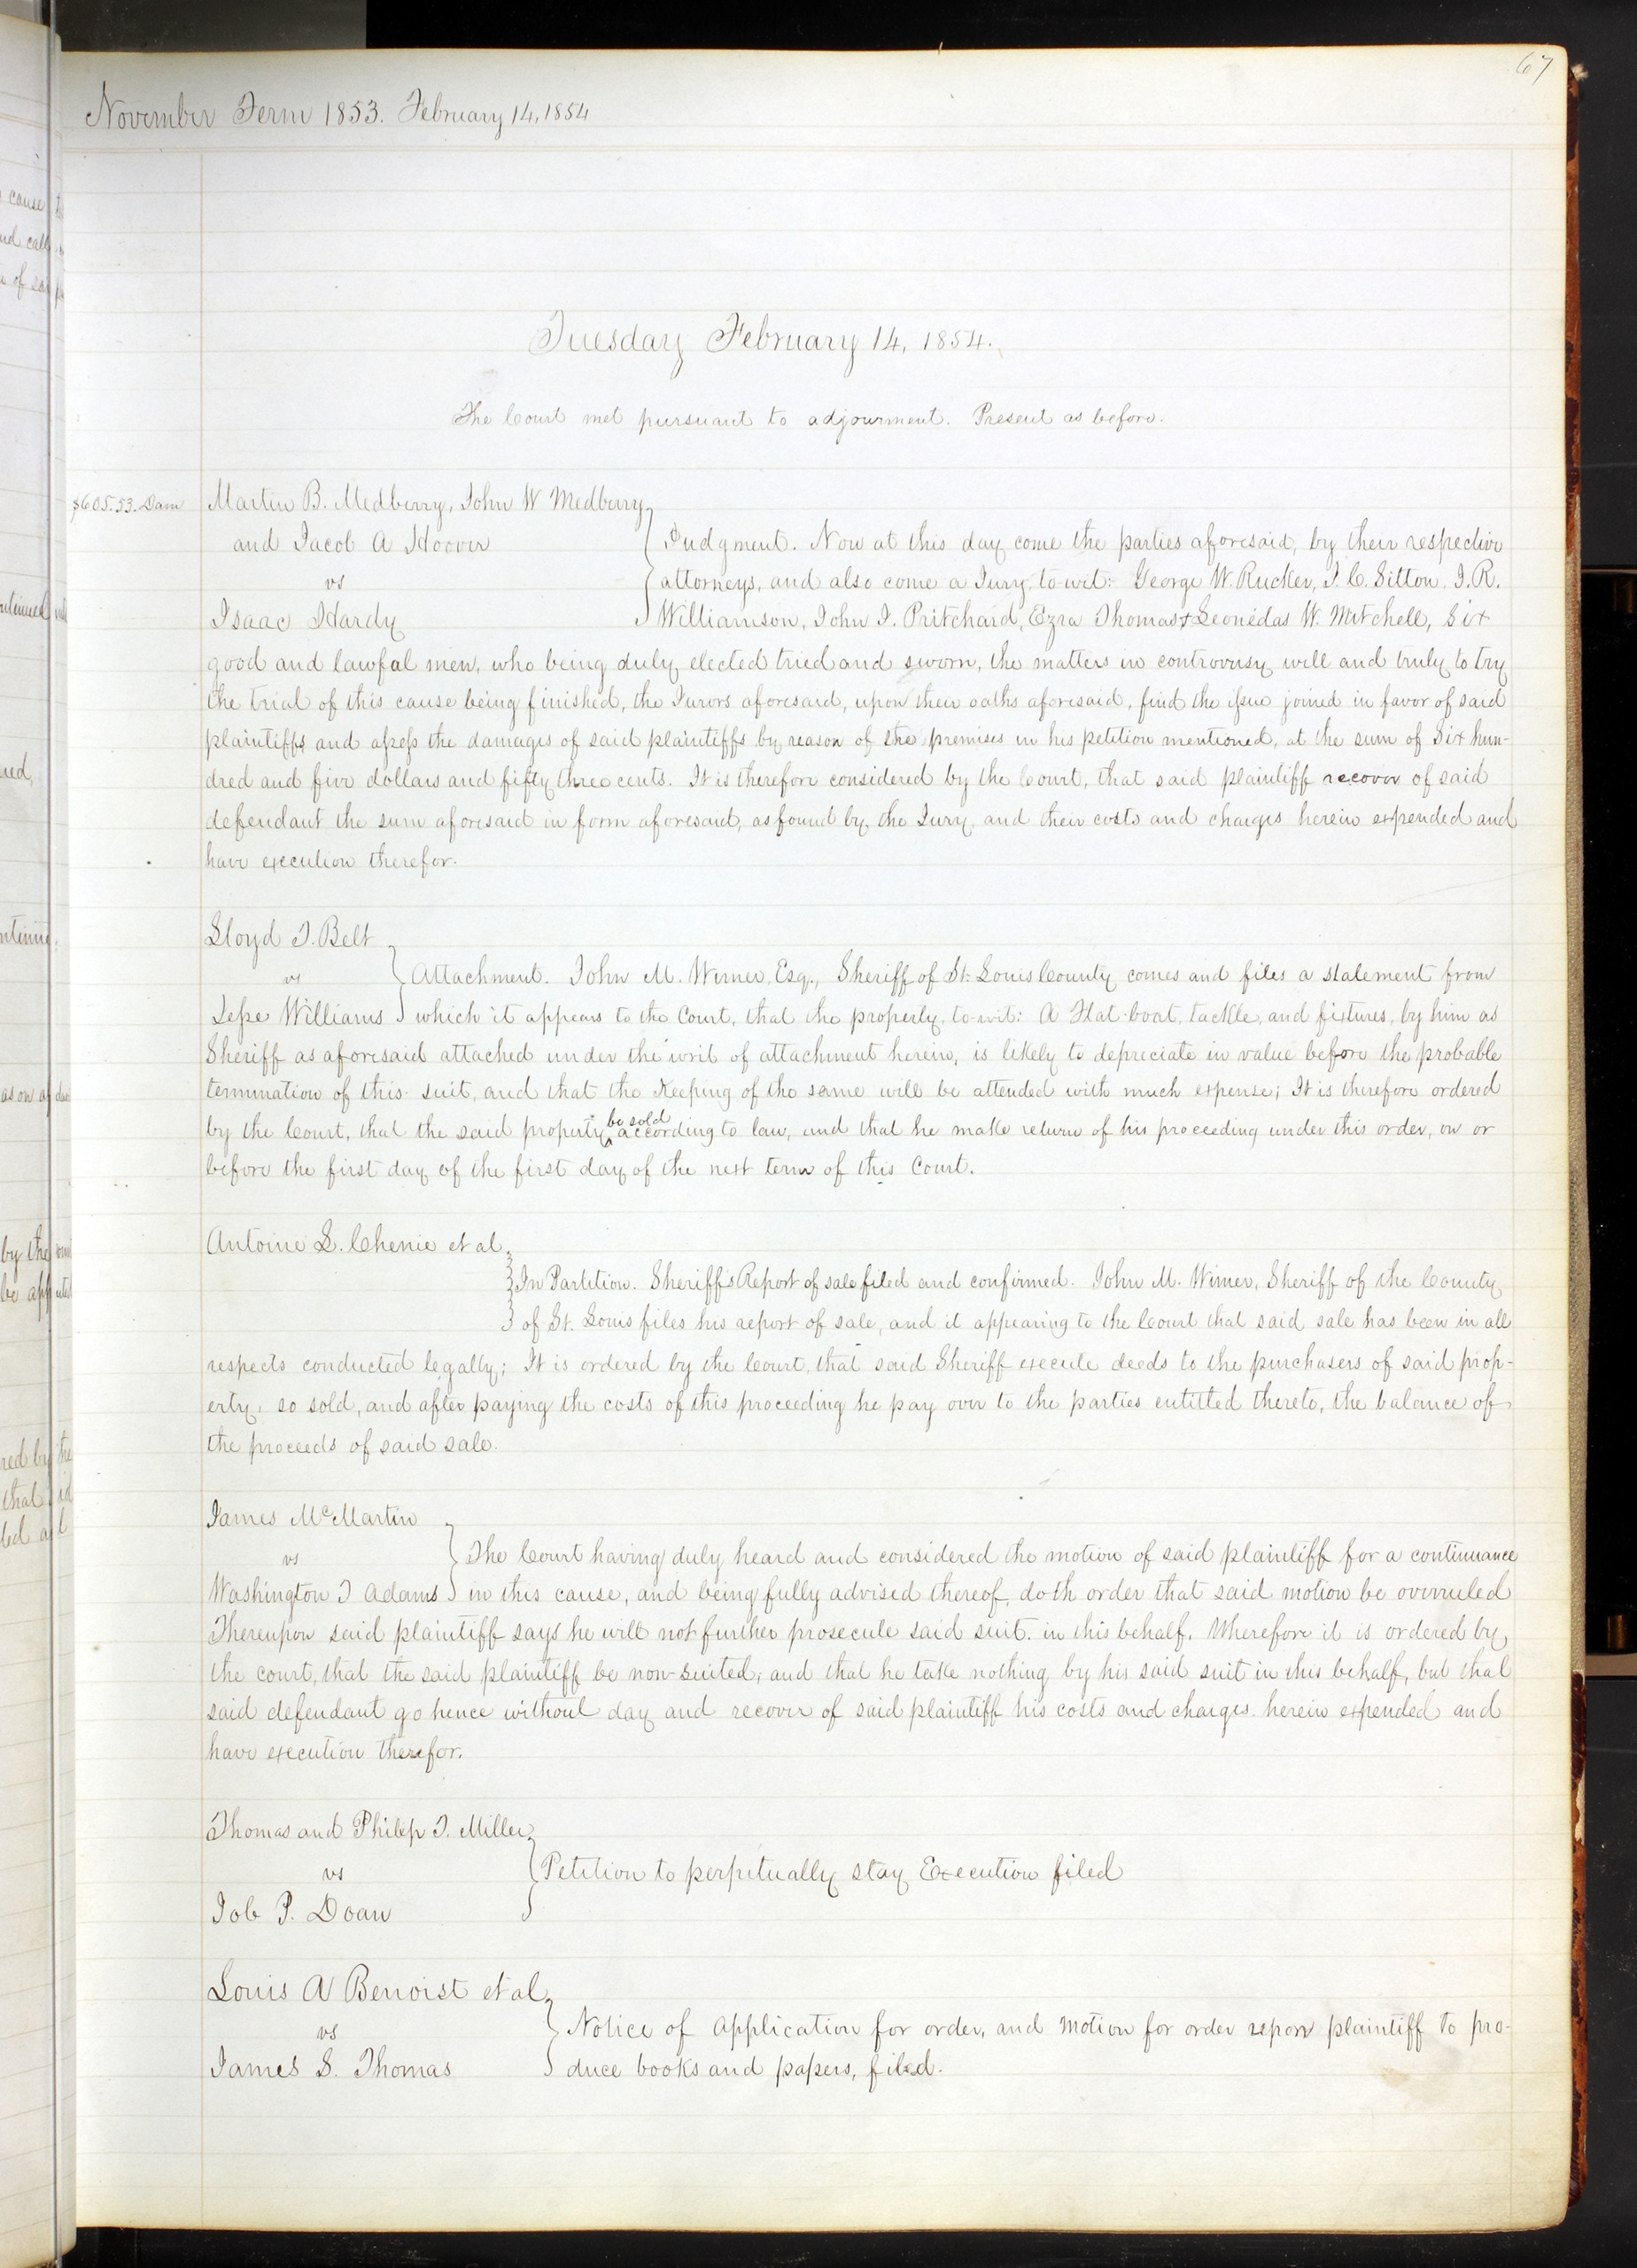 67
November Term 1853. February 14, 1854
Tuesday February 14, 1854.
The Court met pursuant to adjourment. Present as before.
$605.53. Dam
Martin B. Medberry, John W Medberry
and Jacob A Hoover
vs
Isaac Hardy
Judgment. Now at this day come the parties aforesaid, by their respective
attorneys, and also come a Jury, to-wit: George W. Rucker, J. C. Sitton, J. R.
Williamson, John J. Pritchard, Ezra Thomas & Leonidas W. Mitchell, Six
good and lawful men, who being duly elected tried and sworn, the matters in controversy well and truly to try
the trial of this cause being finished, the Jurors aforesaid, upon their oaths aforesaid, find the issue joined in favor of said
plaintiffs and assess the damages of said plaintiffs by reason of the premises in his petition mentioned, at the sum of Six hun-
dred and five dollars and fifty three cents. It is therefore considered by the Court, that said plaintiff recover of said
defendant the sum aforesaid in form aforesaid, as found by the Jury, and their costs and charges herein expended and
have execution therefor.
Lloyd T. Belt
vs
Jesse Williams
Attachment. John M. Wimer, Esq., Sheriff of St. Louis County comes and files a statement from
which it appears to the Court, that the property, to-wit: A Flat-boat, tackle, and fixtures, by him as
Sheriff as aforesaid attached under the writ of attachment herein, is likely to depreciate in value before the probable
termination of this suit, and that the Keeping of the same will be attended with much expense; It is therefore ordered
by the Court, that the said property be sold according to law, and that he make return of his proceeding under this order, on or
before the first day of the first day of the next term of this Court.
Antoine L. Chenie et al
In Partition. Sheriff's Report of sale filed and confirmed. John M. Wimer, Sheriff of the County
of St. Louis files his report of sale, and it appearing to the Court that said sale has been in all
respects conducted legally; It is ordered by the Court, that said Sheriff execute deeds to the purchasers of said prop-
erty, so sold, and after paying the costs of this proceeding he pay over to the parties entitled thereto, the balance of
the proceeds of said sale.
James McMartin
vs
Washington J Adams
The Court having duly heard and considered the motion of said plaintiff for a continuance
in this cause, and being fully advised thereof, doth order that said motion be overruled
Thereupon said plaintiff says he will not further prosecute said suit in this behalf. Wherefore it is ordered by
the court, that the said plaintiff be non-suited, and that he take nothing by his said suit in this behalf, but that
said defendant go hence without day and recover of said plaintiff his costs and charges herein expended and
have execution therefor.
Thomas and Philip T. Miller
vs
Job P. Doan
Petition to perpetually stay Execution filed
Louis A Benoist et al
vs
James S. Thomas
Notice of application for order, and motion for order upon plaintiff to pro-
duce books and papers, filed.